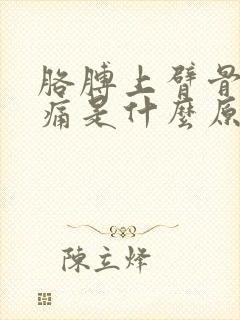 胳膊上臂骨
痛是什麼原
陳立烽